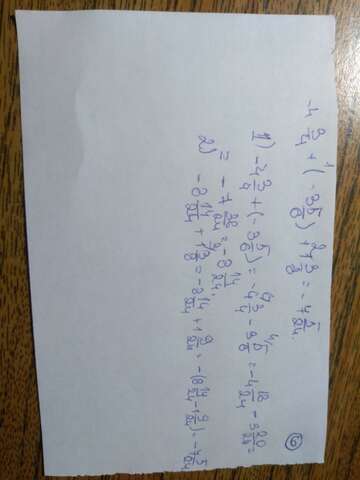 6
-4 3/4 + (-3 5/6) + 1 3/8 = -7 5/24.
1) -4 3/4 + (-3 5/6) = -4 3/4 - 3 5/6 = -4 18/24 - 3 20/24 =
= -7 38/24 = -8 14/24.
2) -8 14/24 + 1 3/8 = -8 14/24 + 1 9/24 = -(8 14/24 - 1 9/24) = -7 5/24